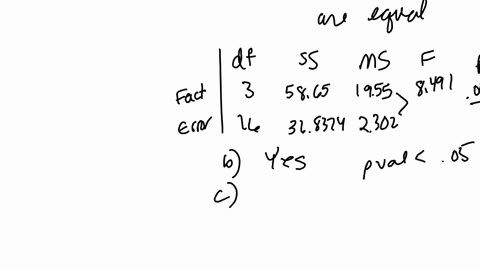 are equal
df SS MS F
Fact 3 58.65 19.55 8.491 .0
Error 16 36.8374 2.302
b) Yes pval < .05
c)